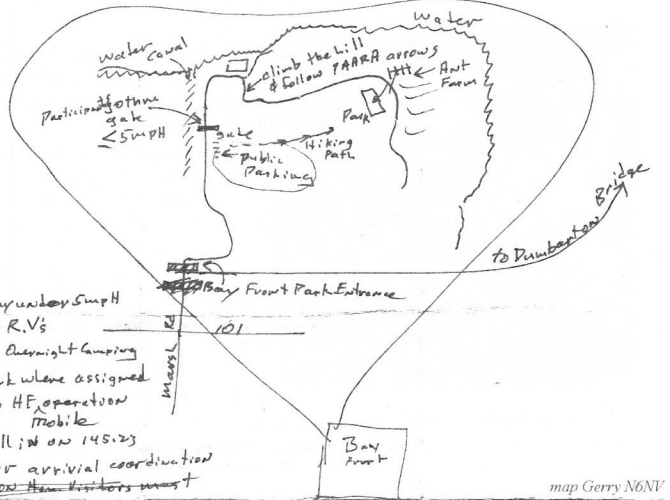 Water
Water Canal
Climb the hill
& follow PAARA arrows
Ant
Farm
Park
Participants
go thru
gate
≤ 5mpH
gate
Hiking
Path
public
Parking
to Dumbarton Bridge
Bay Front Park Entrance
under 5mpH
R.V's
Overnight Camping
where assigned
HF operation
mobile
in on 145.23
arrivial coordination
Visitors must
101
Marsh Rd
Bay
Front
map Gerry N6NV